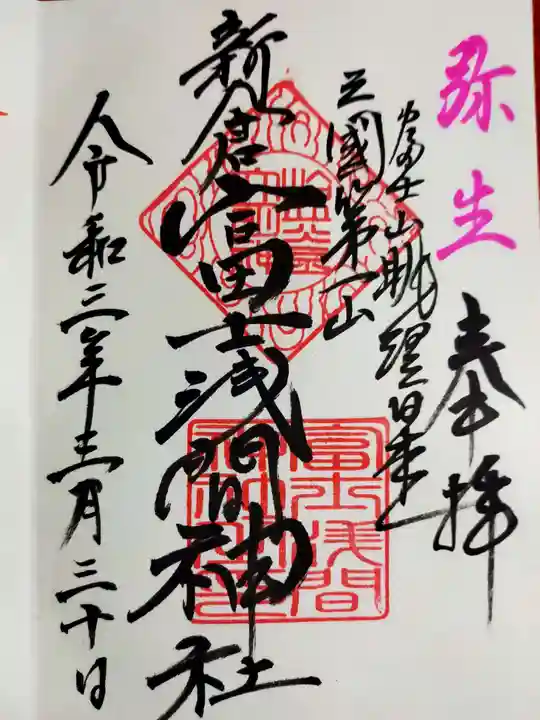 弥生
奉拝
富士山眺望日本一
三國第一山
新倉富士浅間神社
富士浅間
神社
令和三年三月三十日